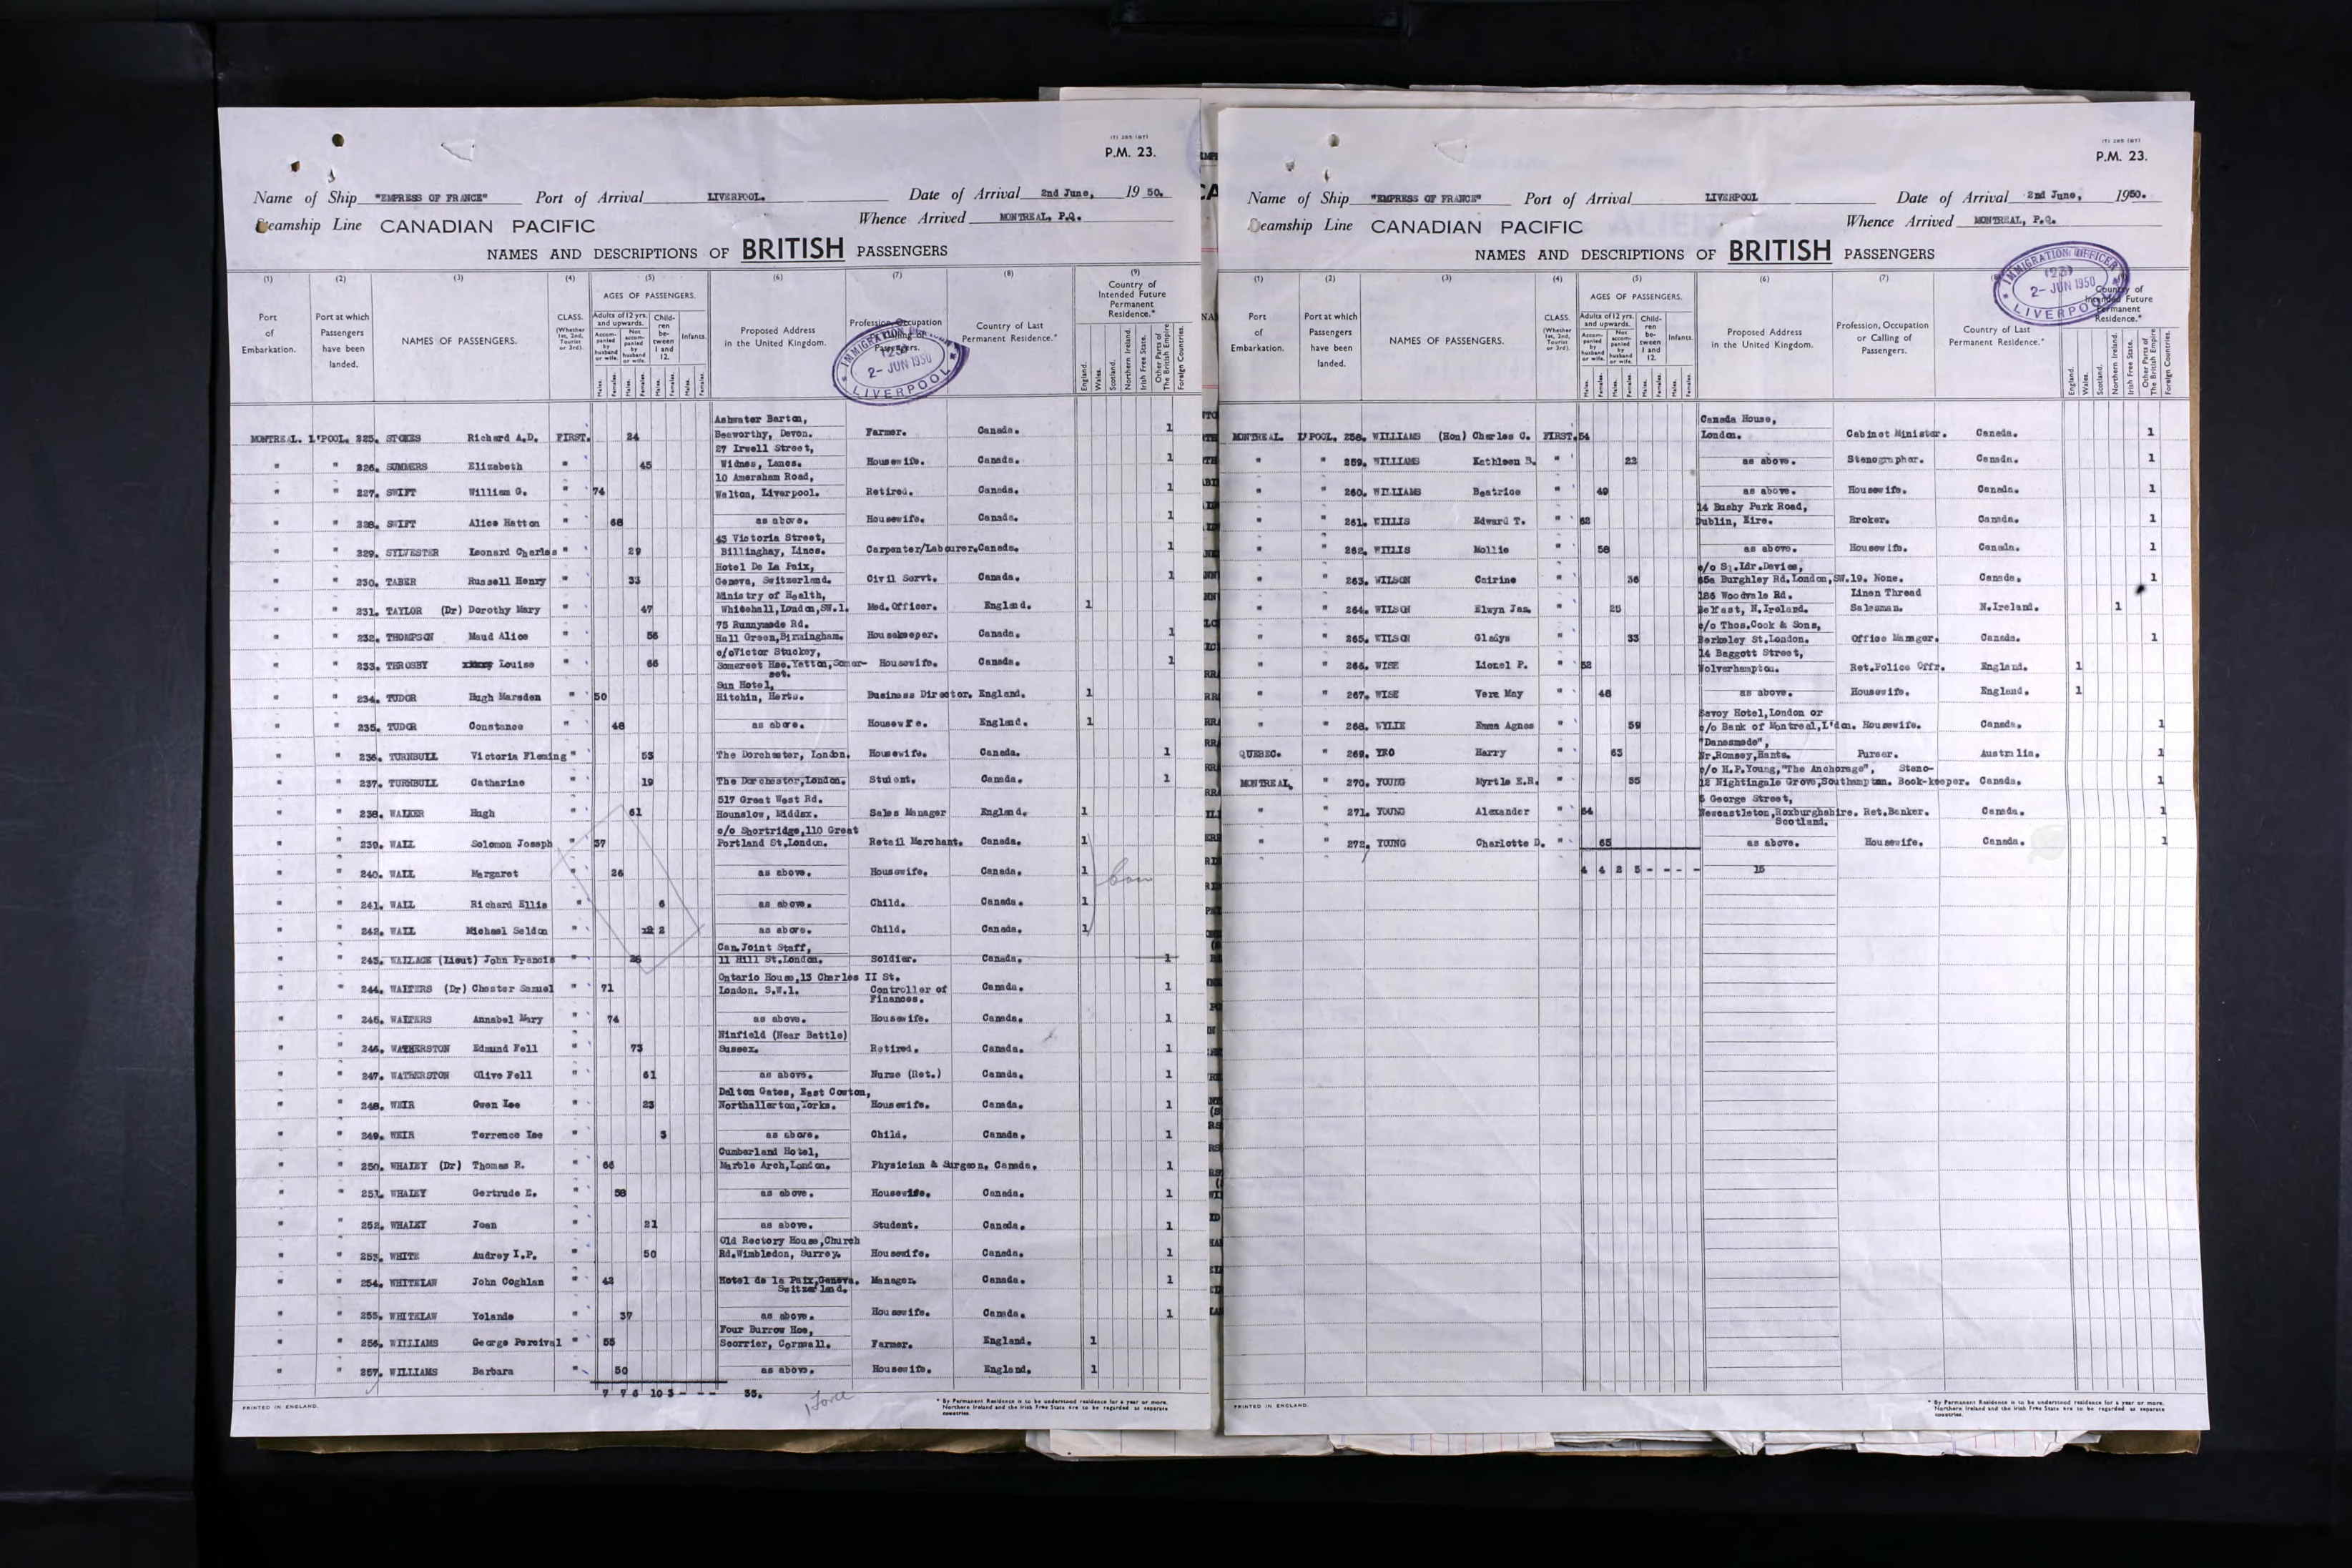 P.M. 23.
Name of Ship "EMPRESS OF FRANCE" Port of Arrival LIVERPOOL. Date of Arrival 2nd June, 19 50.
Steamship Line CANADIAN PACIFIC Whence Arrived MONTREAL, P.Q.
NAMES AND DESCRIPTIONS OF BRITISH PASSENGERS
(1) (2) (3) (4) (5) (6) (7) (8) (9)
Port of Embarkation. Port at which Passengers have been landed. NAMES OF PASSENGERS. CLASS. (Whether 1st, 2nd, Tourist or 3rd). AGES OF PASSENGERS. Adults of 12 yrs. and upwards. Accompanied by husband or wife. Not accompanied by husband or wife. Children between 1 and 12. Infants. Proposed Address in the United Kingdom. Profession, Occupation or Calling of Passengers. Country of Last Permanent Residence.* Country of Intended Future Permanent Residence.*
Males. Females. Males. Females. Males. Females. Males. Females. England. Wales. Scotland. Northern Ireland. Irish Free State. Other Parts of The British Empire Foreign Countries.
IMMIGRATION OFFICER (23) 2- JUN 1950 LIVERPOOL
Ashwater Barton,
MONTREAL. L'POOL. 225. STOKES Richard A.D. FIRST. 24 Beaworthy, Devon. Farmer. Canada. 1
27 Irwell Street,
" " 226. SUMMERS Elizabeth " 45 Widnes, Lancs. Housewife. Canada. 1
10 Amersham Road,
" " 227. SWIFT William G. " 74 Walton, Liverpool. Retired. Canada. 1
" " 228. SWIFT Alice Hatton " 68 as above. Housewife. Canada. 1
43 Victoria Street,
" " 229. SYLVESTER Leonard Charles " 29 Billinghay, Lincs. Carpenter/Labourer. Canada. 1
Hotel De La Paix,
" " 230. TABER Russell Henry " 33 Geneva, Switzerland. Civil Servt. Canada. 1
Ministry of Health,
" " 231. TAYLOR (Dr) Dorothy Mary " 47 Whitehall, London, SW.1. Med. Officer. England. 1
75 Runnymede Rd.
" " 232. THOMPSON Maud Alice " 56 Hall Green, Birmingham. Housekeeper. Canada. 1
c/o Victor Stuckey,
" " 233. THROSBY Louise " 66 Somerset Hse. Yatton, Somer- Housewife. Canada. 1
set.
Sun Hotel,
" " 234. TUDOR Hugh Marsden " 50 Hitchin, Herts. Business Director. England. 1
" " 235. TUDOR Constance " 48 as above. Housewife. England. 1
" " 236. TURNBULL Victoria Fleming " 53 The Dorchester, London. Housewife. Canada. 1
" " 237. TURNBULL Catharine " 19 The Dorchester, London. Student. Canada. 1
517 Great West Rd.
" " 238. WALKER Hugh " 61 Hounslow, Middx. Sales Manager England. 1
c/o Shortridge, 110 Great
" " 239. WALL Solomon Joseph " 37 Portland St, London. Retail Merchant. Canada. 1
" " 240. WALL Margaret " 26 as above. Housewife. Canada. 1
" " 241. WALL Richard Ellis " 6 as above. Child. Canada. 1
" " 242. WALL Michael Seldon " 2 as above. Child. Canada. 1
Can. Joint Staff,
" " 243. WALLACE (Lieut) John Francis " 26 11 Hill St. London. Soldier. Canada. 1
Ontario House, 13 Charles II St.
" " 244. WALTERS (Dr) Chester Samuel " 71 London. S.W.1. Controller of Canada. 1
Finances.
" " 245. WALTERS Annabel Mary " 74 as above. Housewife. Canada. 1
Ninfield (Near Battle)
" " 246. WATHERSTON Edmund Fell " 73 Sussex. Retired. Canada. 1
" " 247. WATHERSTON Olive Fell " 61 as above. Nurse (Ret.) Canada. 1
Dalton Gates, East Cowton,
" " 248. WEIR Gwen Lee " 23 Northallerton, Yorks. Housewife. Canada. 1
" " 249. WEIR Terrence Lee " 3 as above. Child. Canada. 1
Cumberland Hotel,
" " 250. WHALEY (Dr) Thomas R. " 66 Marble Arch, London. Physician & Surgeon. Canada. 1
" " 251. WHALEY Gertrude E. " 58 as above. Housewife. Canada. 1
" " 252. WHALEY Joan " 21 as above. Student. Canada. 1
Old Rectory House, Church
" " 253. WHITE Audrey I.P. " 50 Rd. Wimbledon, Surrey. Housewife. Canada. 1
" " 254. WHITELAW John Coghlan " 42 Hotel de la Paix, Geneva. Manager. Canada. 1
Switzerland.
" " 255. WHITELAW Yolande " 37 as above. Housewife. Canada. 1
Four Burrow Hse,
" " 256. WILLIAMS George Percival " 55 Scorrier, Cornwall. Farmer. England. 1
" " 257. WILLIAMS Barbara " 50 as above. Housewife. England. 1
7 7 6 10 3 - - - 33.
PRINTED IN ENGLAND.
* By Permanent Residence is to be understood residence for a year or more.
Northern Ireland and the Irish Free State are to be regarded as separate
countries.
P.M. 23.
Name of Ship "EMPRESS OF FRANCE" Port of Arrival LIVERPOOL Date of Arrival 2nd June, 1950.
Steamship Line CANADIAN PACIFIC Whence Arrived MONTREAL, P.Q.
NAMES AND DESCRIPTIONS OF BRITISH PASSENGERS
IMMIGRATION OFFICER (23) 2- JUN 1950 LIVERPOOL
(1) (2) (3) (4) (5) (6) (7)
Port of Embarkation. Port at which Passengers have been landed. NAMES OF PASSENGERS. CLASS. (Whether 1st, 2nd, Tourist or 3rd). AGES OF PASSENGERS. Adults of 12 yrs. and upwards. Accompanied by husband or wife. Not accompanied by husband or wife. Children between 1 and 12. Infants. Proposed Address in the United Kingdom. Profession, Occupation or Calling of Passengers. Country of Last Permanent Residence.* Country of Intended Future Permanent Residence.*
Males. Females. Males. Females. Males. Females. Males. Females. England. Wales. Scotland. Northern Ireland. Irish Free State. Other Parts of The British Empire Foreign Countries.
Canada House,
MONTREAL. L'POOL. 258. WILLIAMS (Hon) Charles C. FIRST. 54 London. Cabinet Minister. Canada. 1
" " 259. WILLIAMS Kathleen B. " 22 as above. Stenographer. Canada. 1
" " 260. WILLIAMS Beatrice " 49 as above. Housewife. Canada. 1
14 Bushy Park Road,
" " 261. WILLIS Edward T. " 62 Dublin, Eire. Broker. Canada. 1
" " 262. WILLIS Mollie " 58 as above. Housewife. Canada. 1
c/o Sq. Ldr. Davies,
" " 263. WILSON Cairine " 36 65a Burghley Rd. London, SW.19. None. Canada. 1
186 Woodvale Rd. Linen Thread
" " 264. WILSON Elwyn Jas. " 25 Belfast, N. Ireland. Salesman. N. Ireland. 1
c/o Thos. Cook & Sons,
" " 265. WILSON Gladys " 33 Berkeley St. London. Office Manager. Canada. 1
14 Baggott Street,
" " 266. WISE Lionel P. " 52 Wolverhampton. Ret. Police Offr. England. 1
" " 267. WISE Vera May " 48 as above. Housewife. England. 1
Savoy Hotel, London or
" " 268. WYLIE Emma Agnes " 59 c/o Bank of Montreal, L'don. Housewife. Canada. 1
"Danesmede",
QUEBEC. " 269. YEO Harry " 63 Nr. Romsey, Hants. Purser. Australia. 1
c/o H.P. Young, "The Anchorage", Steno-
MONTREAL. " 270. YOUNG Myrtle E.R. " 55 12 Nightingale Grove, Southampton. Book-keeper. Canada. 1
George Street,
" " 271. YOUNG Alexander " 64 Newcastleton, Roxburghshire. Ret. Banker. Canada. 1
Scotland.
" " 272. YOUNG Charlotte D. " 65 as above. Housewife. Canada. 1
4 4 2 5 - - - - 15
PRINTED IN ENGLAND.
* By Permanent Residence is to be understood residence for a year or more.
Northern Ireland and the Irish Free State are to be regarded as separate
countries.